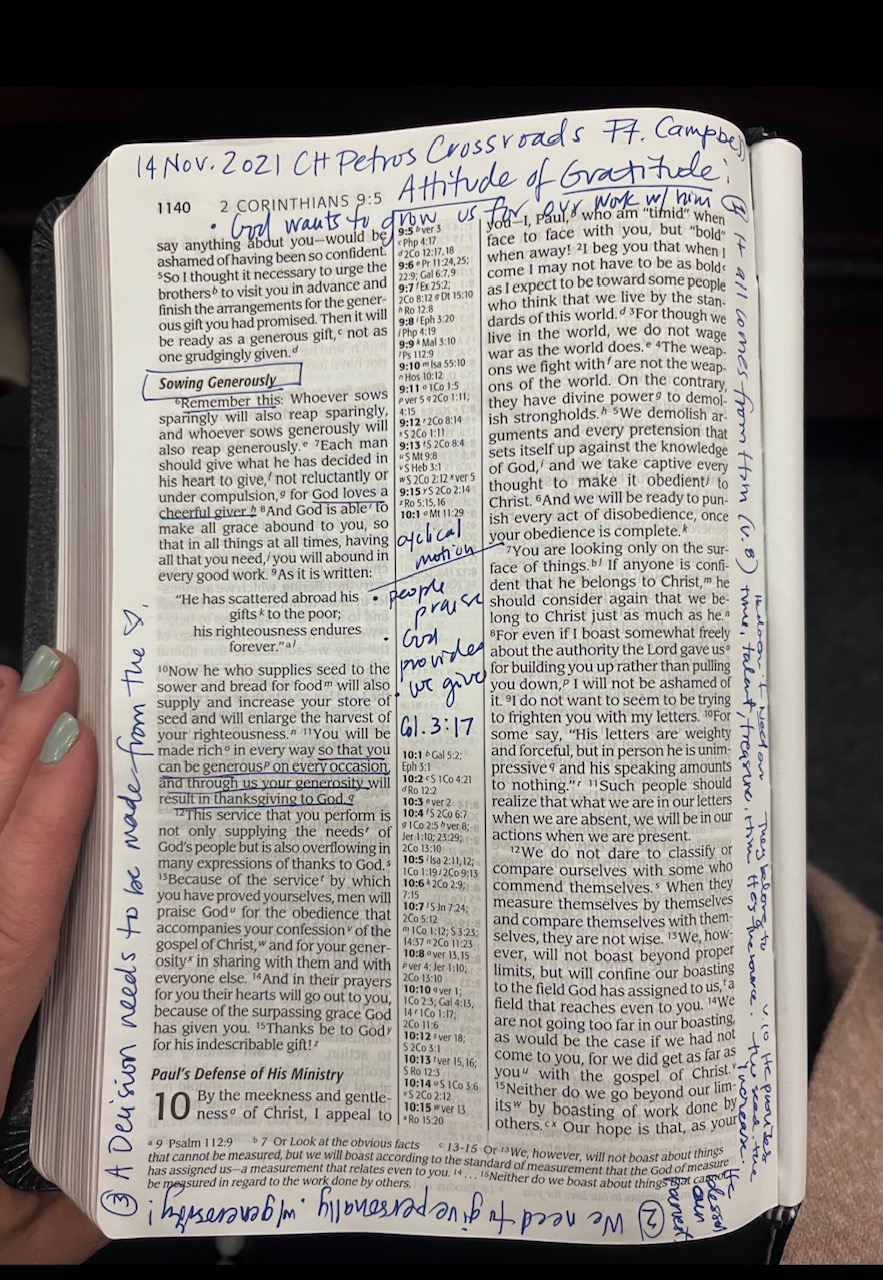 14 Nov. 2021 CH Petros Crossroads Ft. Campbell
Attitude of Gratitude!
1140 2 CORINTHIANS 9:5
• God wants to grow us for our work w/ him
say anything about you—would be
ashamed of having been so confident.
⁵So I thought it necessary to urge the
brothersᵇ to visit you in advance and
finish the arrangements for the gener-
ous gift you had promised. Then it will
be ready as a generous gift,ᶜ not as
one grudgingly given.ᵈ
Sowing Generously
⁶Remember this: Whoever sows
sparingly will also reap sparingly,
and whoever sows generously will
also reap generously.ᵉ ⁷Each man
should give what he has decided in
his heart to give,ᶠ not reluctantly or
under compulsion,ᵍ for God loves a
cheerful giver.ʰ ⁸And God is ableⁱ to
make all grace abound to you, so
that in all things at all times, having
all that you need,ʲ you will abound in
every good work. ⁹As it is written:
"He has scattered abroad his
giftsᵏ to the poor;
his righteousness endures
forever."ᵃˡ
¹⁰Now he who supplies seed to the
sower and bread for foodᵐ will also
supply and increase your store of
seed and will enlarge the harvest of
your righteousness.ⁿ ¹¹You will be
made richᵒ in every way so that you
can be generousᵖ on every occasion,
and through us your generosity will
result in thanksgiving to God.q
¹²This service that you perform is
not only supplying the needsʳ of
God's people but is also overflowing in
many expressions of thanks to God.ˢ
¹³Because of the serviceᵗ by which
you have proved yourselves, men will
praise Godᵘ for the obedience that
accompanies your confessionᵛ of the
gospel of Christ,ʷ and for your gener-
osityˣ in sharing with them and with
everyone else. ¹⁴And in their prayers
for you their hearts will go out to you,
because of the surpassing grace God
has given you. ¹⁵Thanks be to Godʸ
for his indescribable gift!ᶻ
Paul's Defense of His Ministry
10 By the meekness and gentle-
nessᵃ of Christ, I appeal to
9:5 ᵇ ver 3
ᶜ Php 4:17
ᵈ 2Co 12:17,18
9:6 ᵉ Pr 11:24,25;
22:9; Gal 6:7,9
9:7 ᶠ Ex 25:2;
2Co 8:12 ᵍ Dt 15:10
ʰ Ro 12:8
9:8 ⁱ Eph 3:20
ʲ Php 4:19
9:9 ᵏ Mal 3:10
ˡ Ps 112:9
9:10 ᵐ Isa 55:10
ⁿ Hos 10:12
9:11 ᵒ 1Co 1:5
ᵖ ver 5 q 2Co 1:11;
4:15
9:12 ʳ 2Co 8:14
ˢ S 2Co 1:11
9:13 ᵗ S 2Co 8:4
ᵘ S Mt 9:8
ᵛ S Heb 3:1
ʷ S 2Co 2:12 ˣ ver 5
9:15 ʸ S 2Co 2:14
ᶻ Ro 5:15,16
10:1 ᵃ Mt 11:29
cyclical
motion
• people
praise
• God
provides
• we give
Col. 3:17
10:1 ᵇ Gal 5:2;
Eph 3:1
10:2 ᶜ S 1Co 4:21
ᵈ Ro 12:2
10:3 ᵉ ver 2
10:4 ᶠ S 2Co 6:7
ᵍ 1Co 2:5 ʰ ver 8;
Jer 1:10; 23:29;
2Co 13:10
10:5 ⁱ Isa 2:11,12;
1Co 1:19 ʲ 2Co 9:13
10:6 ᵏ 2Co 2:9;
7:15
10:7 ˡ S Jn 7:24;
2Co 5:12
ᵐ 1Co 1:12; S 3:23;
14:37 ⁿ 2Co 11:23
10:8 ᵒ ver 13,15
ᵖ ver 4; Jer 1:10;
2Co 13:10
10:10 q ver 1;
1Co 2:3; Gal 4:13,
14 ʳ 1Co 1:17;
2Co 11:6
10:12 ˢ ver 18;
S 2Co 3:1
10:13 ᵗ ver 15,16;
S Ro 12:3
10:14 ᵘ S 1Co 3:6
ᵛ S 2Co 2:12
10:15 ʷ ver 13
ˣ Ro 15:20
you—I, Paul,ᵇ who am "timid" when
face to face with you, but "bold"
when away! ²I beg you that when I
come I may not have to be as boldᶜ
as I expect to be toward some people
who think that we live by the stan-
dards of this world.ᵈ ³For though we
live in the world, we do not wage
war as the world does.ᵉ ⁴The weap-
ons we fight withᶠ are not the weap-
ons of the world. On the contrary,
they have divine powerᵍ to demol-
ish strongholds.ʰ ⁵We demolish ar-
guments and every pretension that
sets itself up against the knowledge
of God,ⁱ and we take captive every
thought to make it obedientʲ to
Christ. ⁶And we will be ready to pun-
ish every act of disobedience, once
your obedience is complete.ᵏ
⁷You are looking only on the sur-
face of things.ᵇˡ If anyone is confi-
dent that he belongs to Christ,ᵐ he
should consider again that we be-
long to Christ just as much as he.ⁿ
⁸For even if I boast somewhat freely
about the authority the Lord gave usᵒ
for building you up rather than pulling
you down,ᵖ I will not be ashamed of
it. ⁹I do not want to seem to be trying
to frighten you with my letters. ¹⁰For
some say, "His letters are weighty
and forceful, but in person he is unim-
pressiveq and his speaking amounts
to nothing."ʳ ¹¹Such people should
realize that what we are in our letters
when we are absent, we will be in our
actions when we are present.
¹²We do not dare to classify or
compare ourselves with some who
commend themselves.ˢ When they
measure themselves by themselves
and compare themselves with them-
selves, they are not wise. ¹³We, how-
ever, will not boast beyond proper
limits, but will confine our boasting
to the field God has assigned to us,ᵗ a
field that reaches even to you. ¹⁴We
are not going too far in our boasting,
as would be the case if we had not
come to you, for we did get as far as
youᵘ with the gospel of Christ.ᵛ
¹⁵Neither do we go beyond our lim-
itsʷ by boasting of work done by
others.ᶜˣ Our hope is that, as your
ᵃ 9 Psalm 112:9 ᵇ 7 Or Look at the obvious facts ᶜ 13-15 Or ¹³We, however, will not boast about things
that cannot be measured, but we will boast according to the standard of measurement that the God of measure
has assigned us—a measurement that relates even to you. ¹⁴ . . . ¹⁵Neither do we boast about things that cannot
be measured in regard to the work done by others.
② We need to give personally w/generosity!
③ A Decision needs to be made from the ♡.
④ It all comes from Him (v. 8) time, talent, treasure,
They belong to
Him
v. 10 He provides
the seed. the
increase.
He
own
harvest